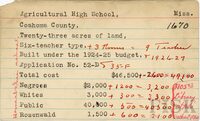 Agricultural High School, Miss.
Coahoma County. 1670
Twenty-three acres of land.
Six-teacher type. + 3 Homes = 9 Teacher
Built under the 1924-25 budget. 1926-27
Application No. 52-D 35-D
Total cost $46,500 + 2600 = 49100
Negroes $2,000 + 1200 = 3200
Whites 3,000 + = 3300
Public 40,000 + = 
Rosenwald 1,500 + 600 = 2100